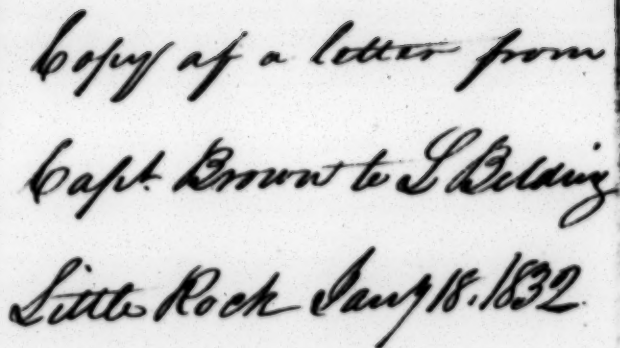 Copy of a letter from
Capt. Brown to L Belding
Little Rock Jany 18, 1832.